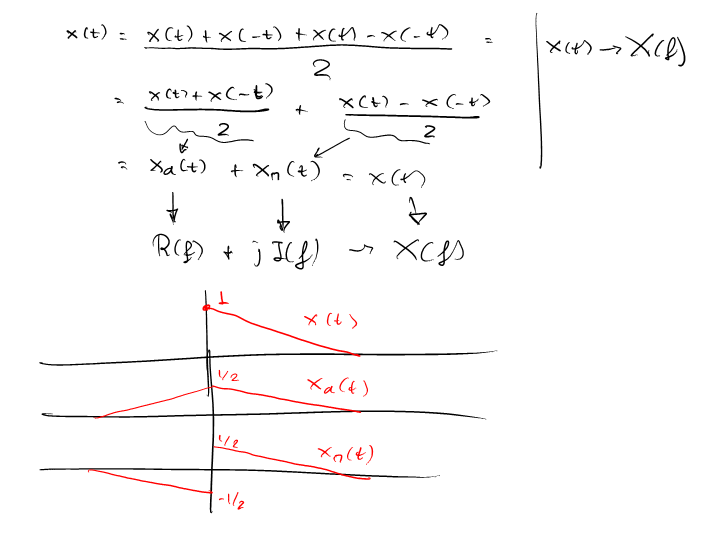 x(t) = x(t) + x(-t) + x(t) - x(-t) / 2 =
= x(t) + x(-t) / 2 + x(t) - x(-t) / 2
= xa(t) + xn(t) = x(t)
R(f) + j I(f) → X(f)
x(t) → X(f)
1
x(t)
1/2
xa(t)
1/2
xn(t)
-1/2